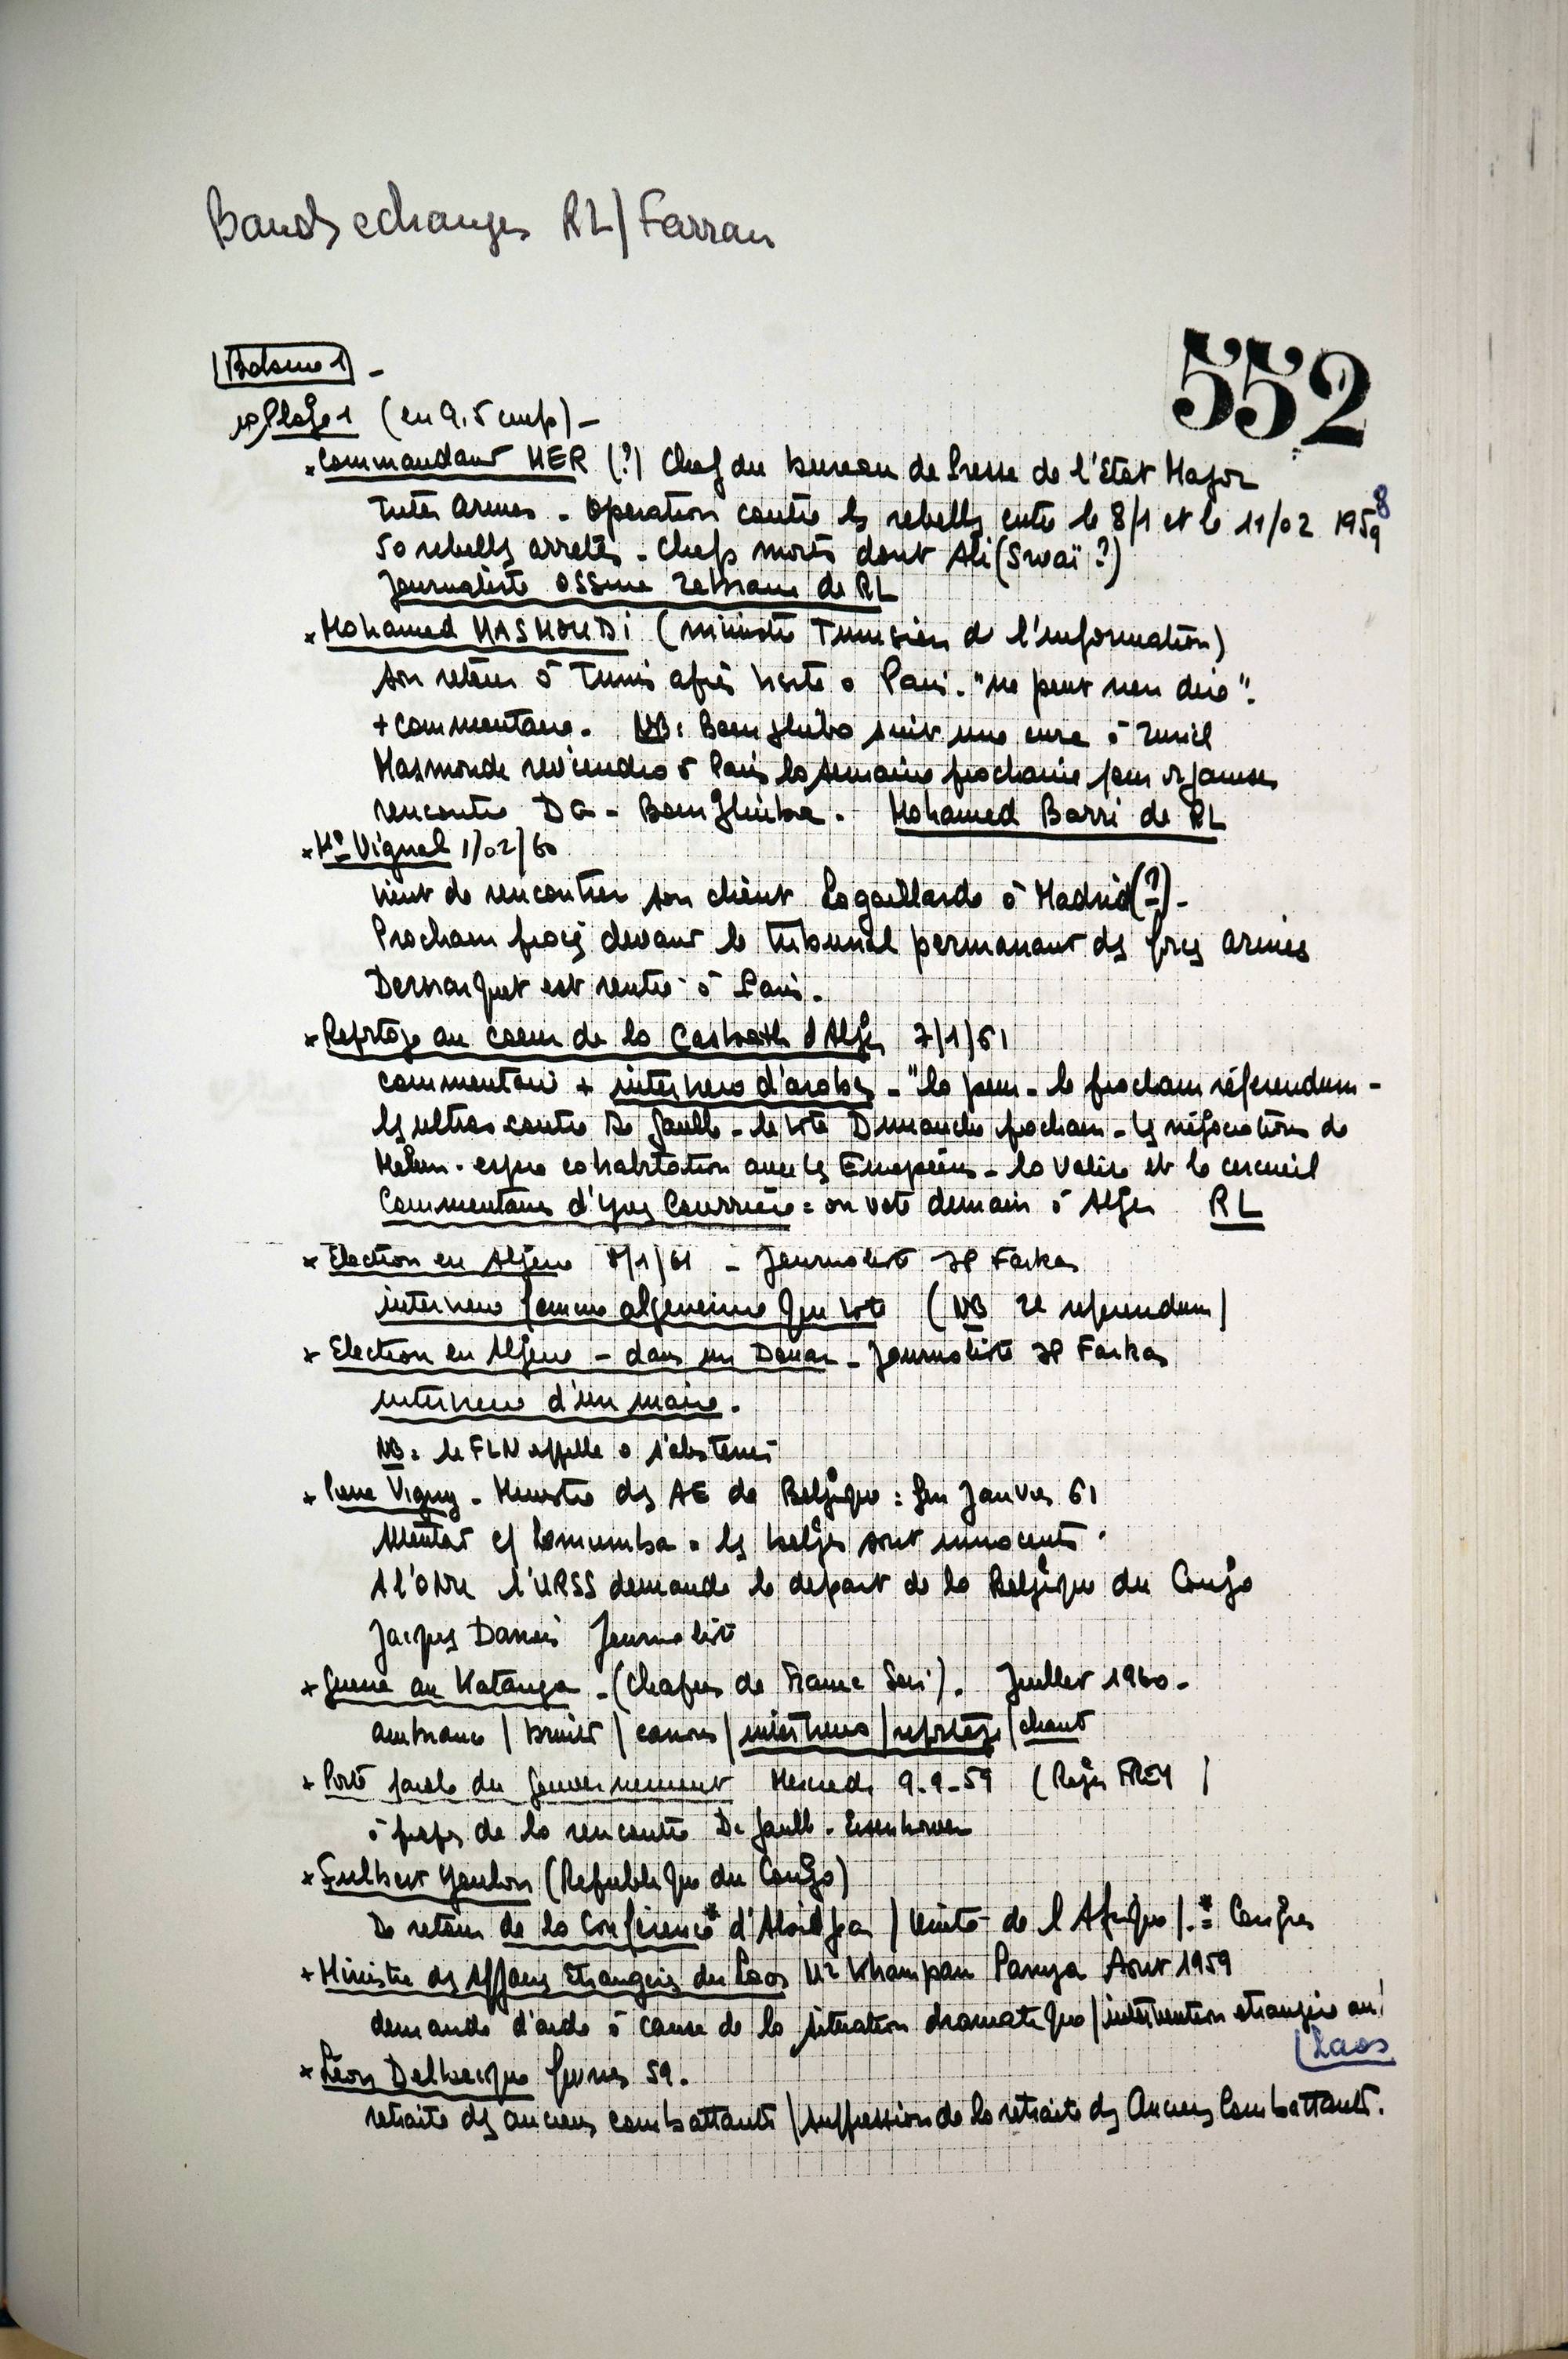 Bands echanges RL/Farran
552
Bobine 1 -
1) Plage 1 (en 9,5 cm/s) -
* Commandant MER (?) Chef du bureau de Presse de l'Etat Major
Inter Armes - Operation contre les rebelles entre le 8/1 et le 11/02 1959 8
50 rebelles arretés - Chefs morts dont Ali (Swaï ?)
Journaliste de RL
* Mohamed MASMOUDI (ministre Tunisien de l'information)
son retour à Tunis après visite à Paris. "ne peut rien dire".
+ commentaire. NB: Bourghiba suit une cure à Zurich
Masmoude reviendra à Paris la semaine prochaine pour organiser
rencontre DG - Bourghiba. Mohamed Barri de RL
* Me Vignal 1/02/60
vient de rencontrer son client Lagaillarde à Madrid (?) -
Prochain procès devant le tribunal permanant des forces armées
Demarquet est rentré à Paris.
* Reportage au coeur de la Casbah d'Alger 7/1/61
commentaire + interview d'arabes - "la peur - le prochain référendum -
les ultras contre De Gaulle - le vote Dimanche prochain - les négociations de
Melun - cohabitation avec les Européens - la valise et le cercueil
Commentaires d'Yves Courrière = on vote demain à Alger RL
* Election en Algérie 8/1/61 - Journaliste JP Farkas
interview femme algérienne qui vote (NB 2e referendum)
* Election en Algérie - dans un Douar - Journaliste JP Farkas
interview d'un maire.
NB: le FLN appelle à s'abstenir
* Pierre Vigny - Ministre des AE de Belgique : fin Janvier 61
Attentat c/ Lomumba = les belges sont innocents.
A l'ONU l'URSS demande le départ de la Belgique du Congo
Jacques Journaliste
* Guerre au Katanga - (Chapus de France Soir). Juillet 1960 -
ambiance / bruits / canons / interviews / reportage / chant
* Porte parole du Gouvernement Mercredi 9-9-59 (Roger FREY )
à propos de la rencontre De Gaulle - Eisenhower
* Fulbert Youlou (Republique du Congo)
De retour de la Conférence* d'Abidjan / Unité de l'Afrique / .*= Congrès
* Ministre des Affaires Etrangères du Laos Mr Khampan Panya Aout 1959
demande d'aide à cause de la situation dramatique / intervention étrangère au
Laos
* Léon Delbecque fevrier 59.
retraite des anciens combattants / suppression de la retraite des Anciens Combattants.